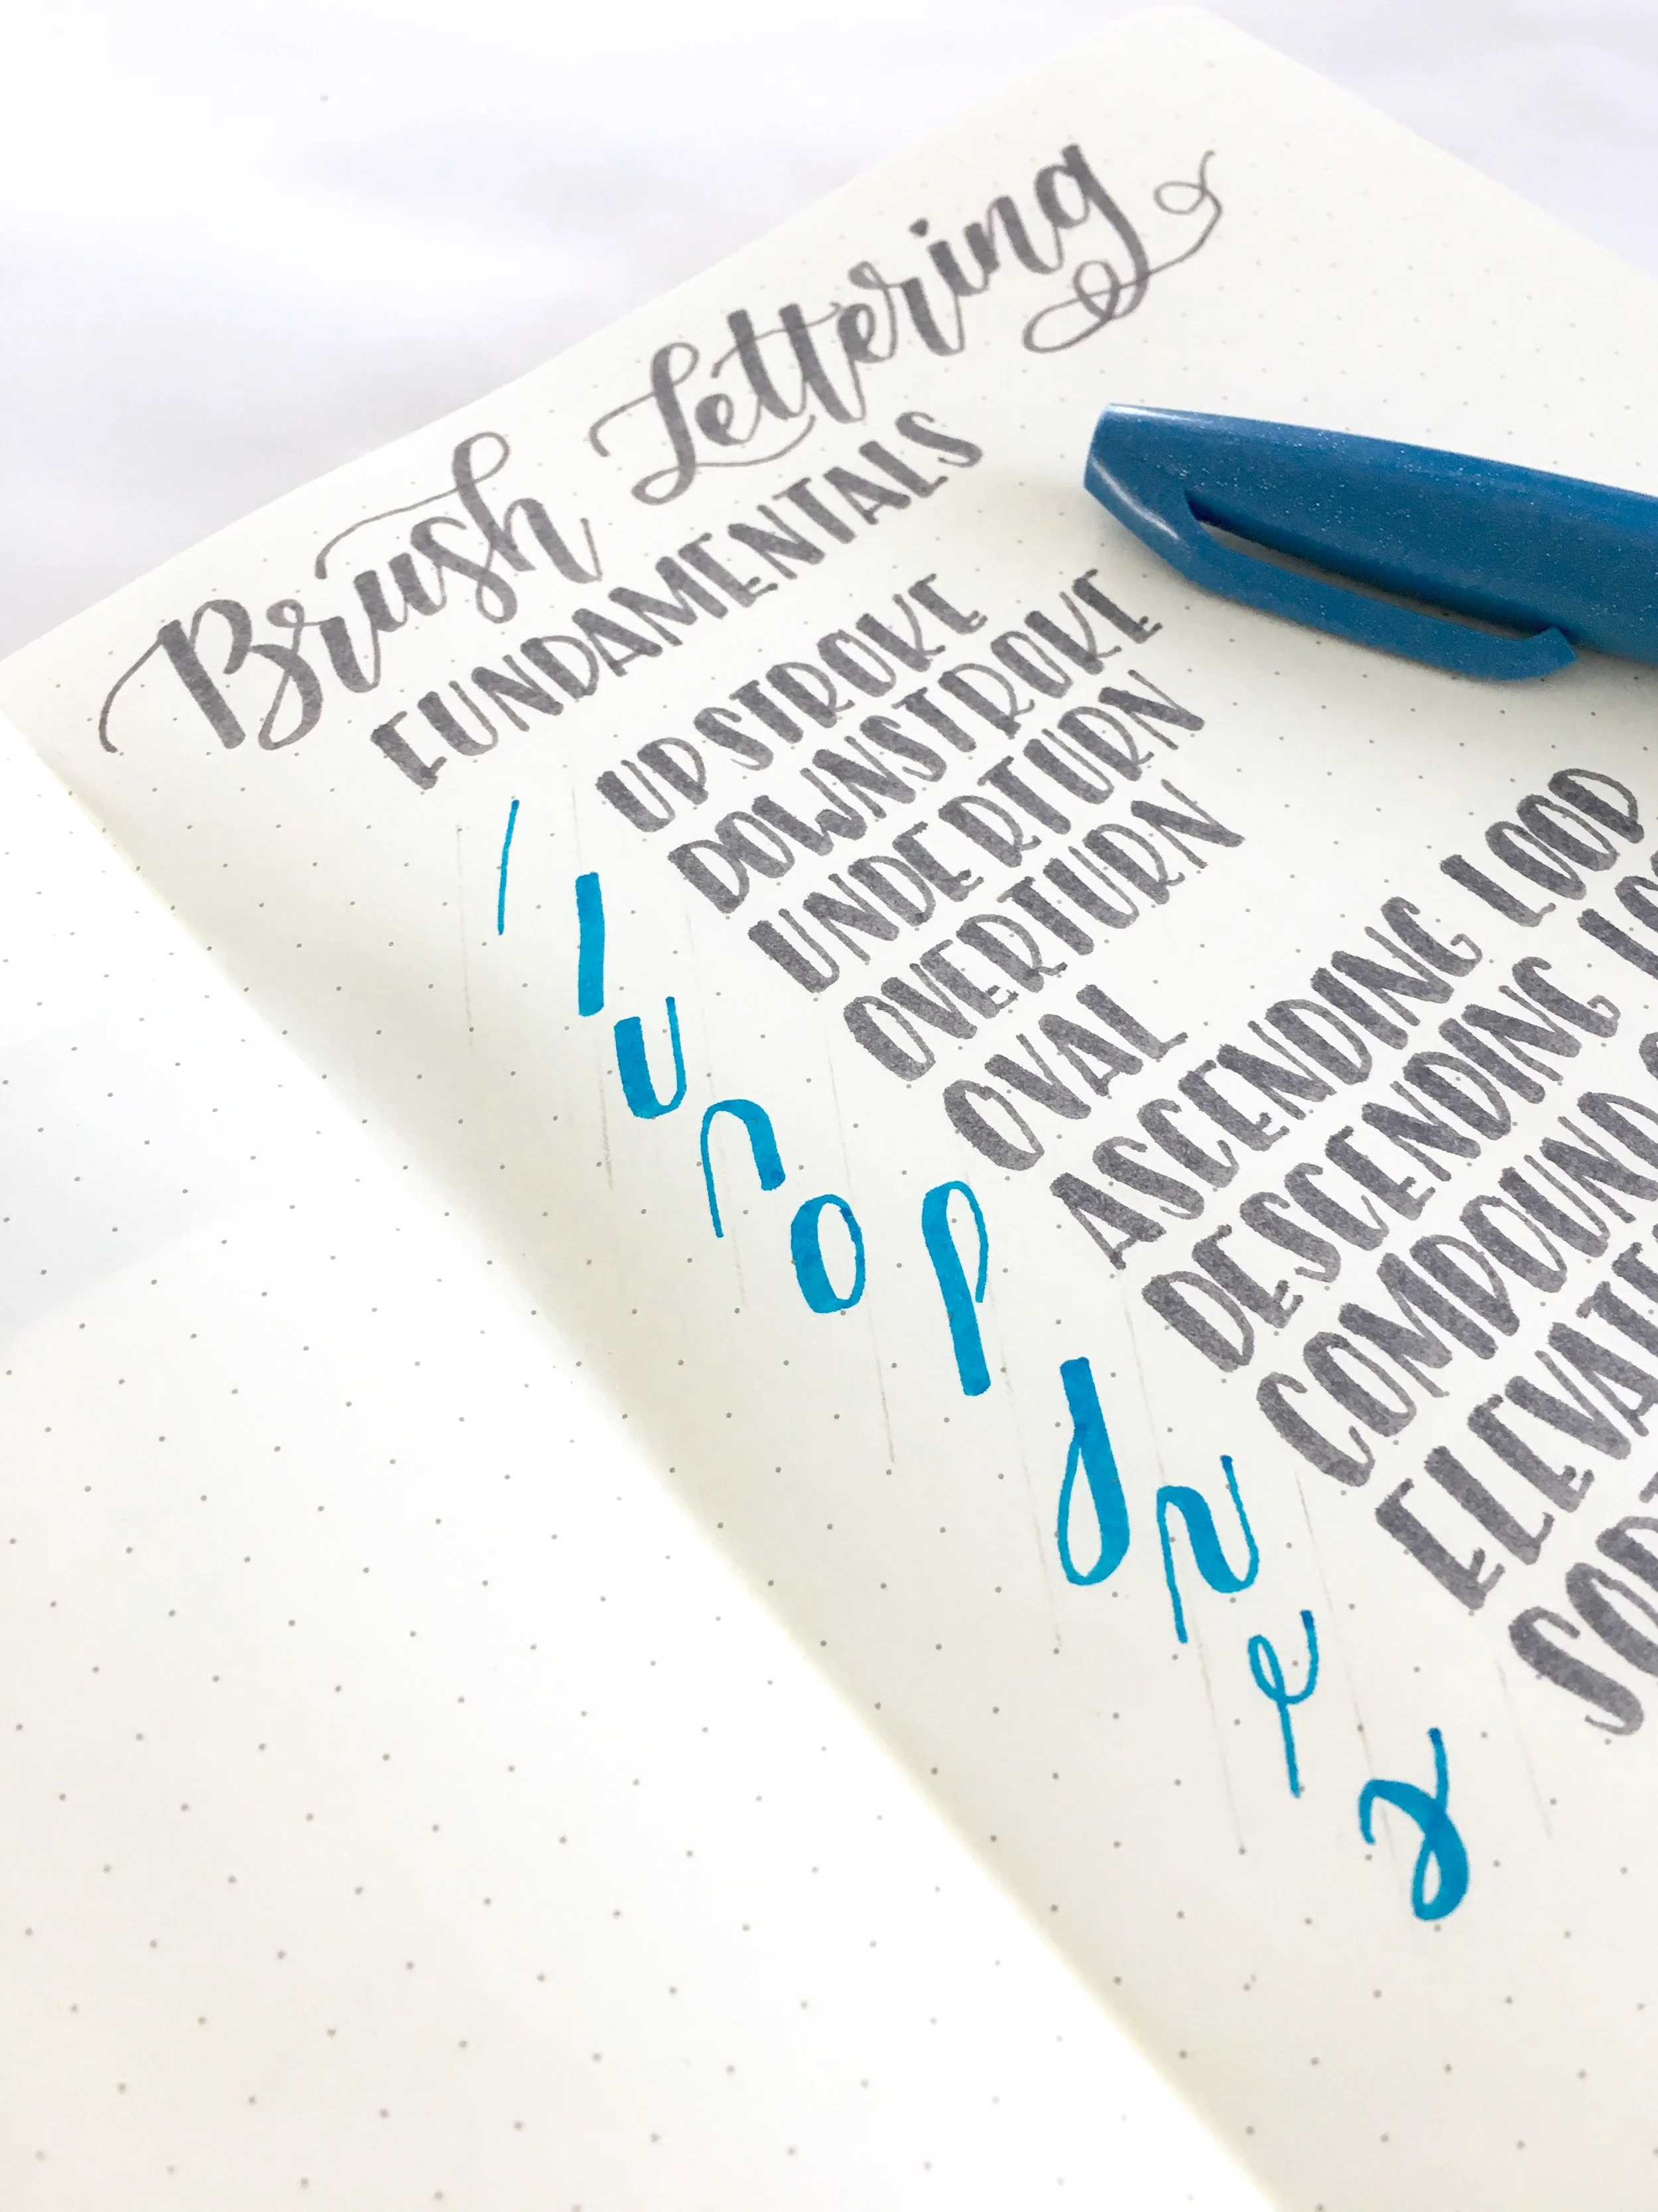 Brush Lettering
FUNDAMENTALS
UPSTROKE
DOWNSTROKE
UNDERTURN
OVERTURN
OVAL
ASCENDING LOOP
DESCENDING
COMPOUND